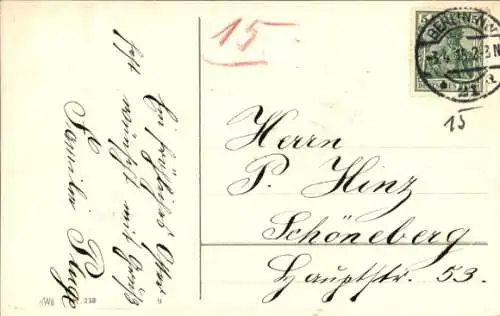 Ein fröhliches Oster-
fest wünscht mit Gruß
Familie Plage
15
BERLIN
3.4.15.
5
15
Herrn
P. Hinz
Schöneberg
Hauptstr. 53.
338